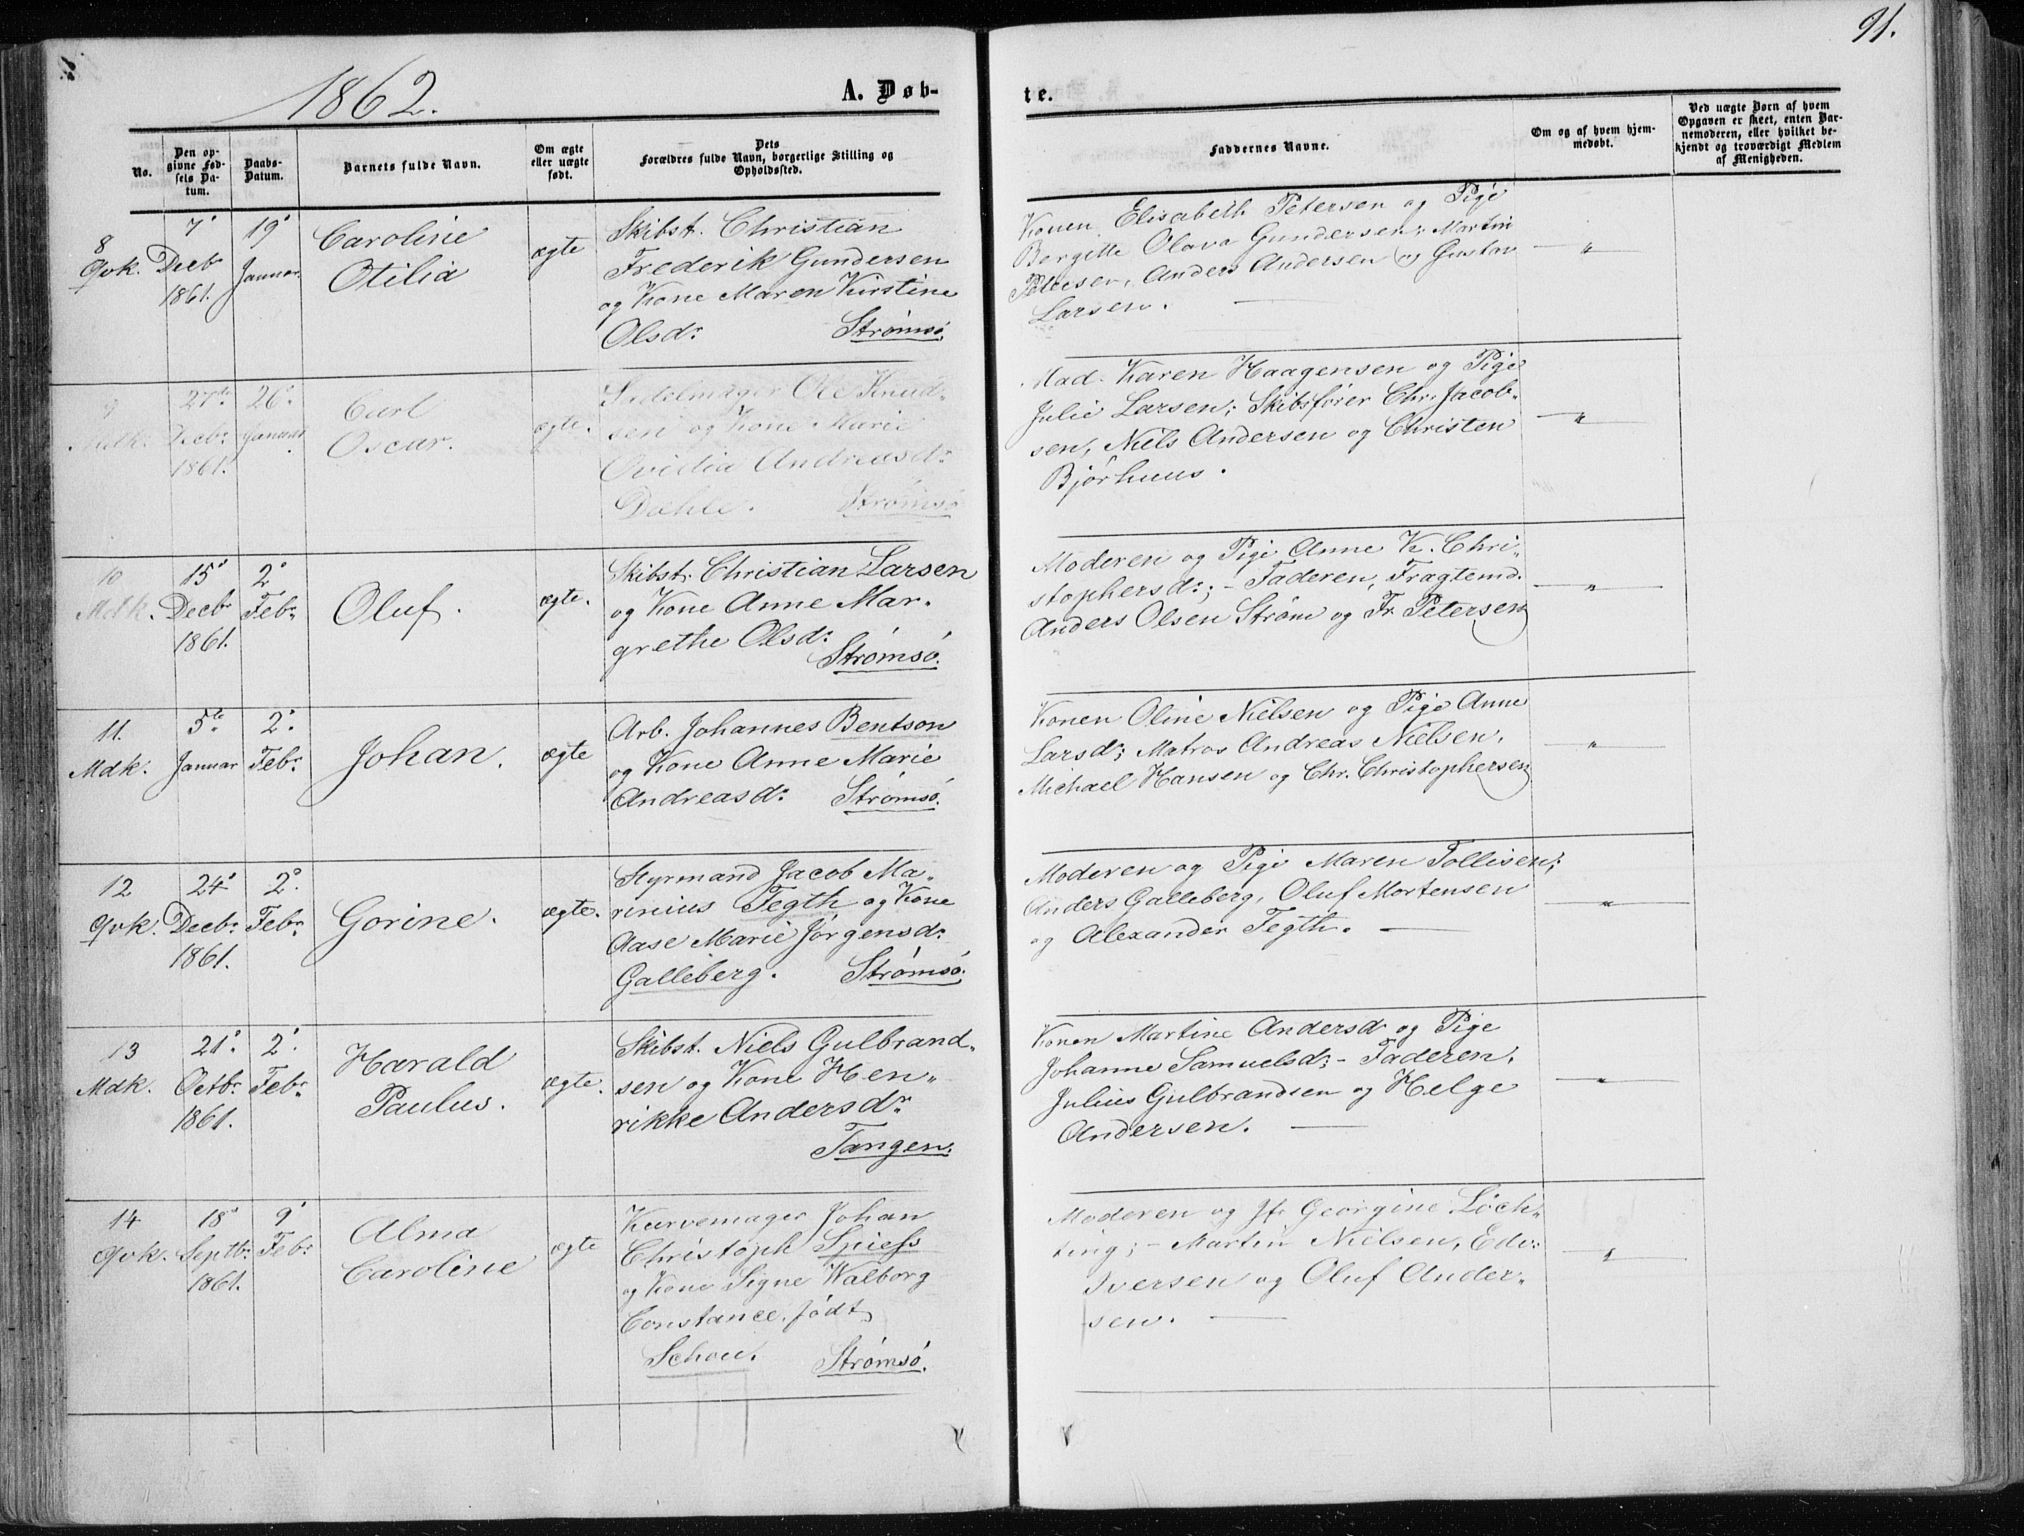 91.
1862.
A. Døb-
te.
No.
Den op-
givne Fød-
sels Da-
tum.
Daabs-
Datum.
Barnets fulde Navn.
Om ægte
eller uægte
født.
Dets
Forældres fulde Navn, borgerlige Stilling og
Opholdssted.
Faddernes Navne.
Om og af hvem hjem-
medøbt.
Ved uægte Børn af hvem
Opgaven er skeet, enten Bar-
nemoderen, eller hvilket be-
kjendt og troværdigt Medlem
af Menigheden.
8
Qvk.
7de
Decbr
1861.
19de
Januar.
Caroline
Otilia
ægte
Skibst. Christian
Frederik Gundersen
og Kone Maren Kirstine
Olsdr. Strømsø.
Konen Elisabeth Petersen og Pige
Bergitte Olava Gundersen; Martin
Petersen, Anders Andersen og Gustav
Larsen. —
"
9
Mdk.
27de
Decbr.
1861.
26de
Januar.
Carl
Oscar.
ægte.
Sadelmager Ole Knud-
sen og Kone Marie
Ovidia Andreasdr.
Dæhle. Strømsø
Mad. Karen Haagensen og Pige
Julie Larsen; Skibsfører Chr. Jacob-
sen, Niels Andersen og Christen
Bjørhuus.
"
10
Mdk.
15de
Decbr
1861.
2de
Febr.
Oluf.
ægte.
Skibst. Christian Larsen
og Kone Anne Mar-
grethe Olsdr.
Strømsø.
Moderen og Pige Anne K. Chri-
stophersdr; - Faderen, Fragtemd.
Anders Olsen Strøm og Fr. Petersen
"
11.
Mdk.
5te
Januar
2de
Febr.
Johan.
ægte
Arb. Johannes Bentson
og Kone Anne Marie
Andreasdr. Strømsø.
Konen Oline Nielsen og Pige Anne
Larsdr; Matros Andreas Nielsen,
Michael Hansen og Chr. Christophersen
"
12
Qvk.
24de
Decbr.
1861.
2de
Febr.
Gorine.
ægte.
Styrmand Jacob Ma-
rinius Fegth og Kone
Aase Marie Jørgensdr.
Galleberg. Strømsø.
Moderen og Pige Maren Tollisen;
Anders Galleberg, Oluf Mortensen
og Alexander Fegth. —
"
13
Mdk.
21de
Octbr.
1861.
2de
Febr.
Harald
Paulus.
ægte.
Skibst. Niels Gulbrand-
sen og Kone Hen-
rikke Andersdr.
Tangen.
Konen Martine Andersdr og Pige
Johanne Samuelsdr; - Faderen,
Julius Gulbrandsen og Helge
Andersen. —
"
14
Qvk.
18de
Septbr.
1861.
9de
Febr.
Alma
Caroline
ægte
Kurvemager Johan
Christoph Spiess
og Kone Signe Walborg
Constance, født
Schou. Strømsø.
Moderen og Jfr Georgine Löch-
ting; - Martin Nielsen, Edv.
Iversen og Oluf Ander-
sen. —
"